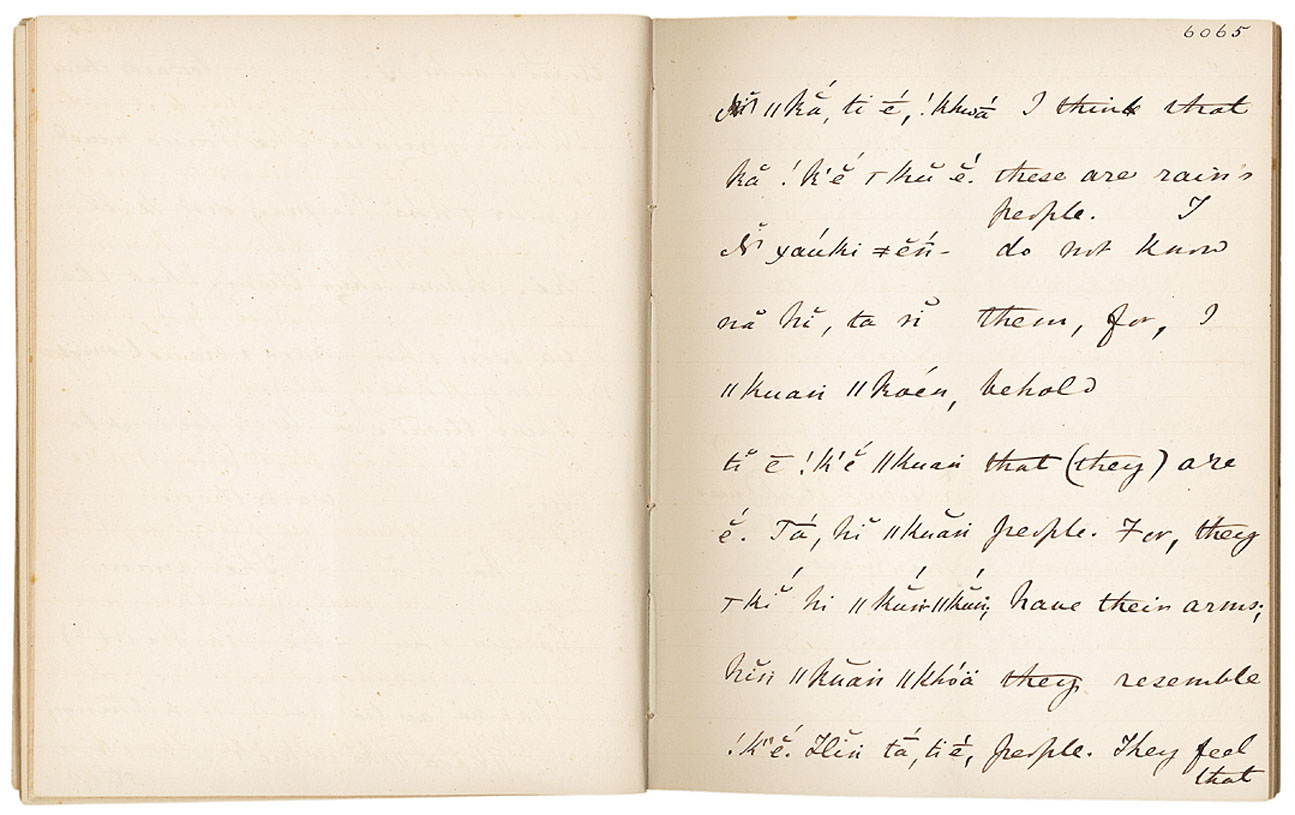 6065
Ṅ ǁkắ, ti ḗ, !khwā́ I think that
kă !k'ĕ́ ⊤kŭ ĕ́. these are rain's
people. I
Ṅ̆ χáuki ≠ĕ́ṅ- do not know
nă hĭ, ta ṅ̆ them, for, I
ǁkuaṅ ǁkóen, behold
tĭ ē !k'ĕ́ ǁkuaṅ that (they) are
ĕ́. Tā́, hĭ ǁkŭaṅ people. For, they
⊤kĭ́ hi ǁkŭ́ṅǁkŭ́ṅ; have their arms;
hĭṅ ǁkŭaṅ ǁkhóä they resemble
!k''ĕ́. Hĭṅ tā́, ti ḗ, people. They feel
that